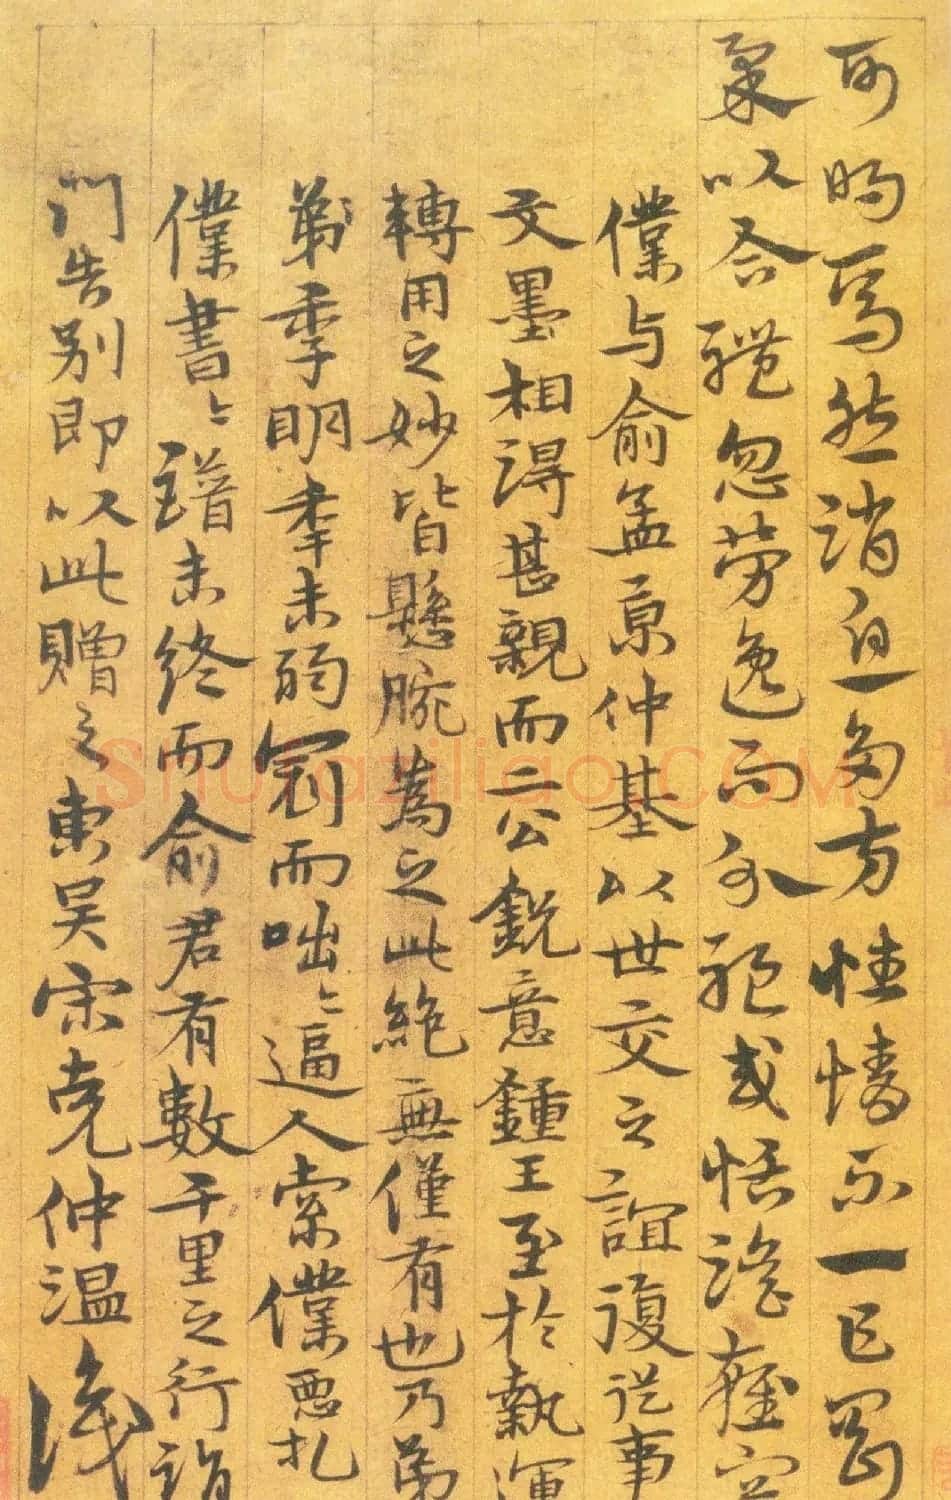 可明焉然消息多方性情不一乍剛
柔以合體忽勞逸而分驅或恬澹雍容
僕与俞孟京仲基以世交之誼復從事
文墨相得甚親而二公銳意鍾王至於執運
轉用之妙皆懸腕為之此絕無僅有也乃弟
弟季明年未弱冠而咄〻逼人索僕惡札
僕書〻譜未終而俞君有數千里之行詣
門告別即以此贈之東吳宋克仲温識
Shufaziliao.COM